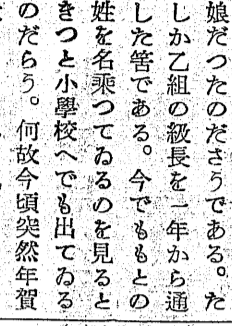 娘だつたのださうである。た
しか乙組の級長を一年から通
した筈である。今でももとの
姓を名乗つてゐるのを見ると
きつと小學校へでも出てゐる
のだらう。何故今頃突然年賀